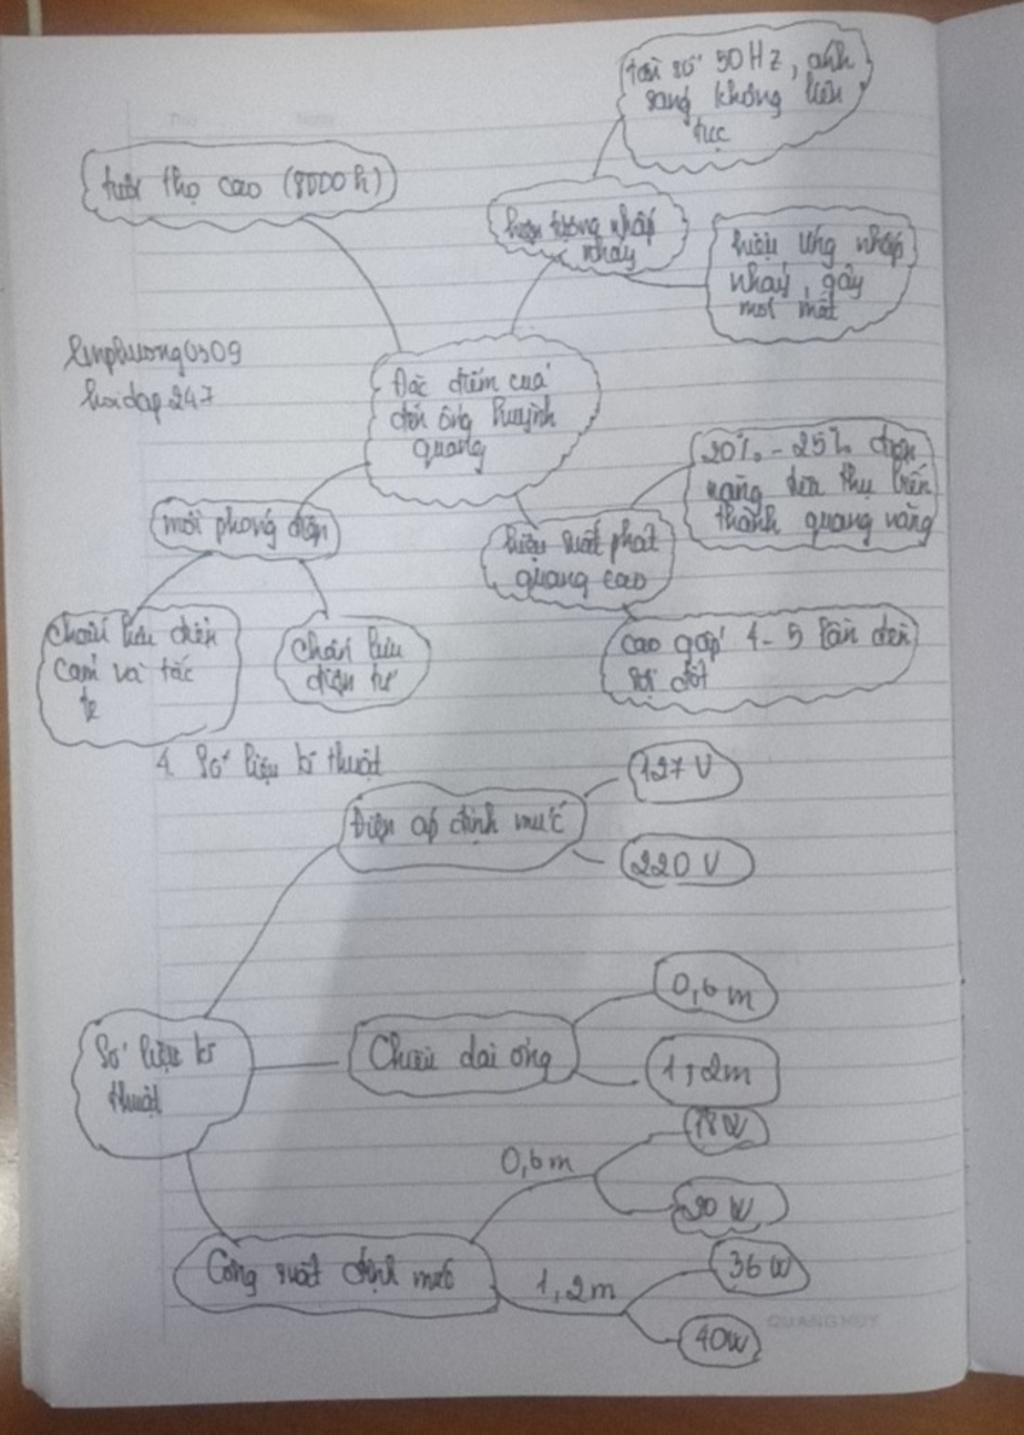 tần số 50Hz, ánh
sáng không liên
tục
tuổi thọ cao (8000h)
hiện tượng nhấp
nháy
hiệu ứng nhấp
nháy, gây
mỏi mắt
linphuong0309
hoidap247
Đặc điểm của
đèn ống huỳnh
quang
20% - 25% điện
năng tiêu thụ biến
thành quang năng
mồi phóng điện
hiệu suất phát
quang cao
Chấn lưu điện
cảm và tắc
te
Chấn lưu
điện tử
cao gấp 4-5 lần đèn
sợi đốt
4. Số liệu kĩ thuật
127 V
Điện áp định mức
220 V
0,6m
Số liệu kĩ
thuật
Chiều dài ống
1,2m
18W
0,6m
20W
Công suất định mức
36W
1,2m
40W
QUANG HUY